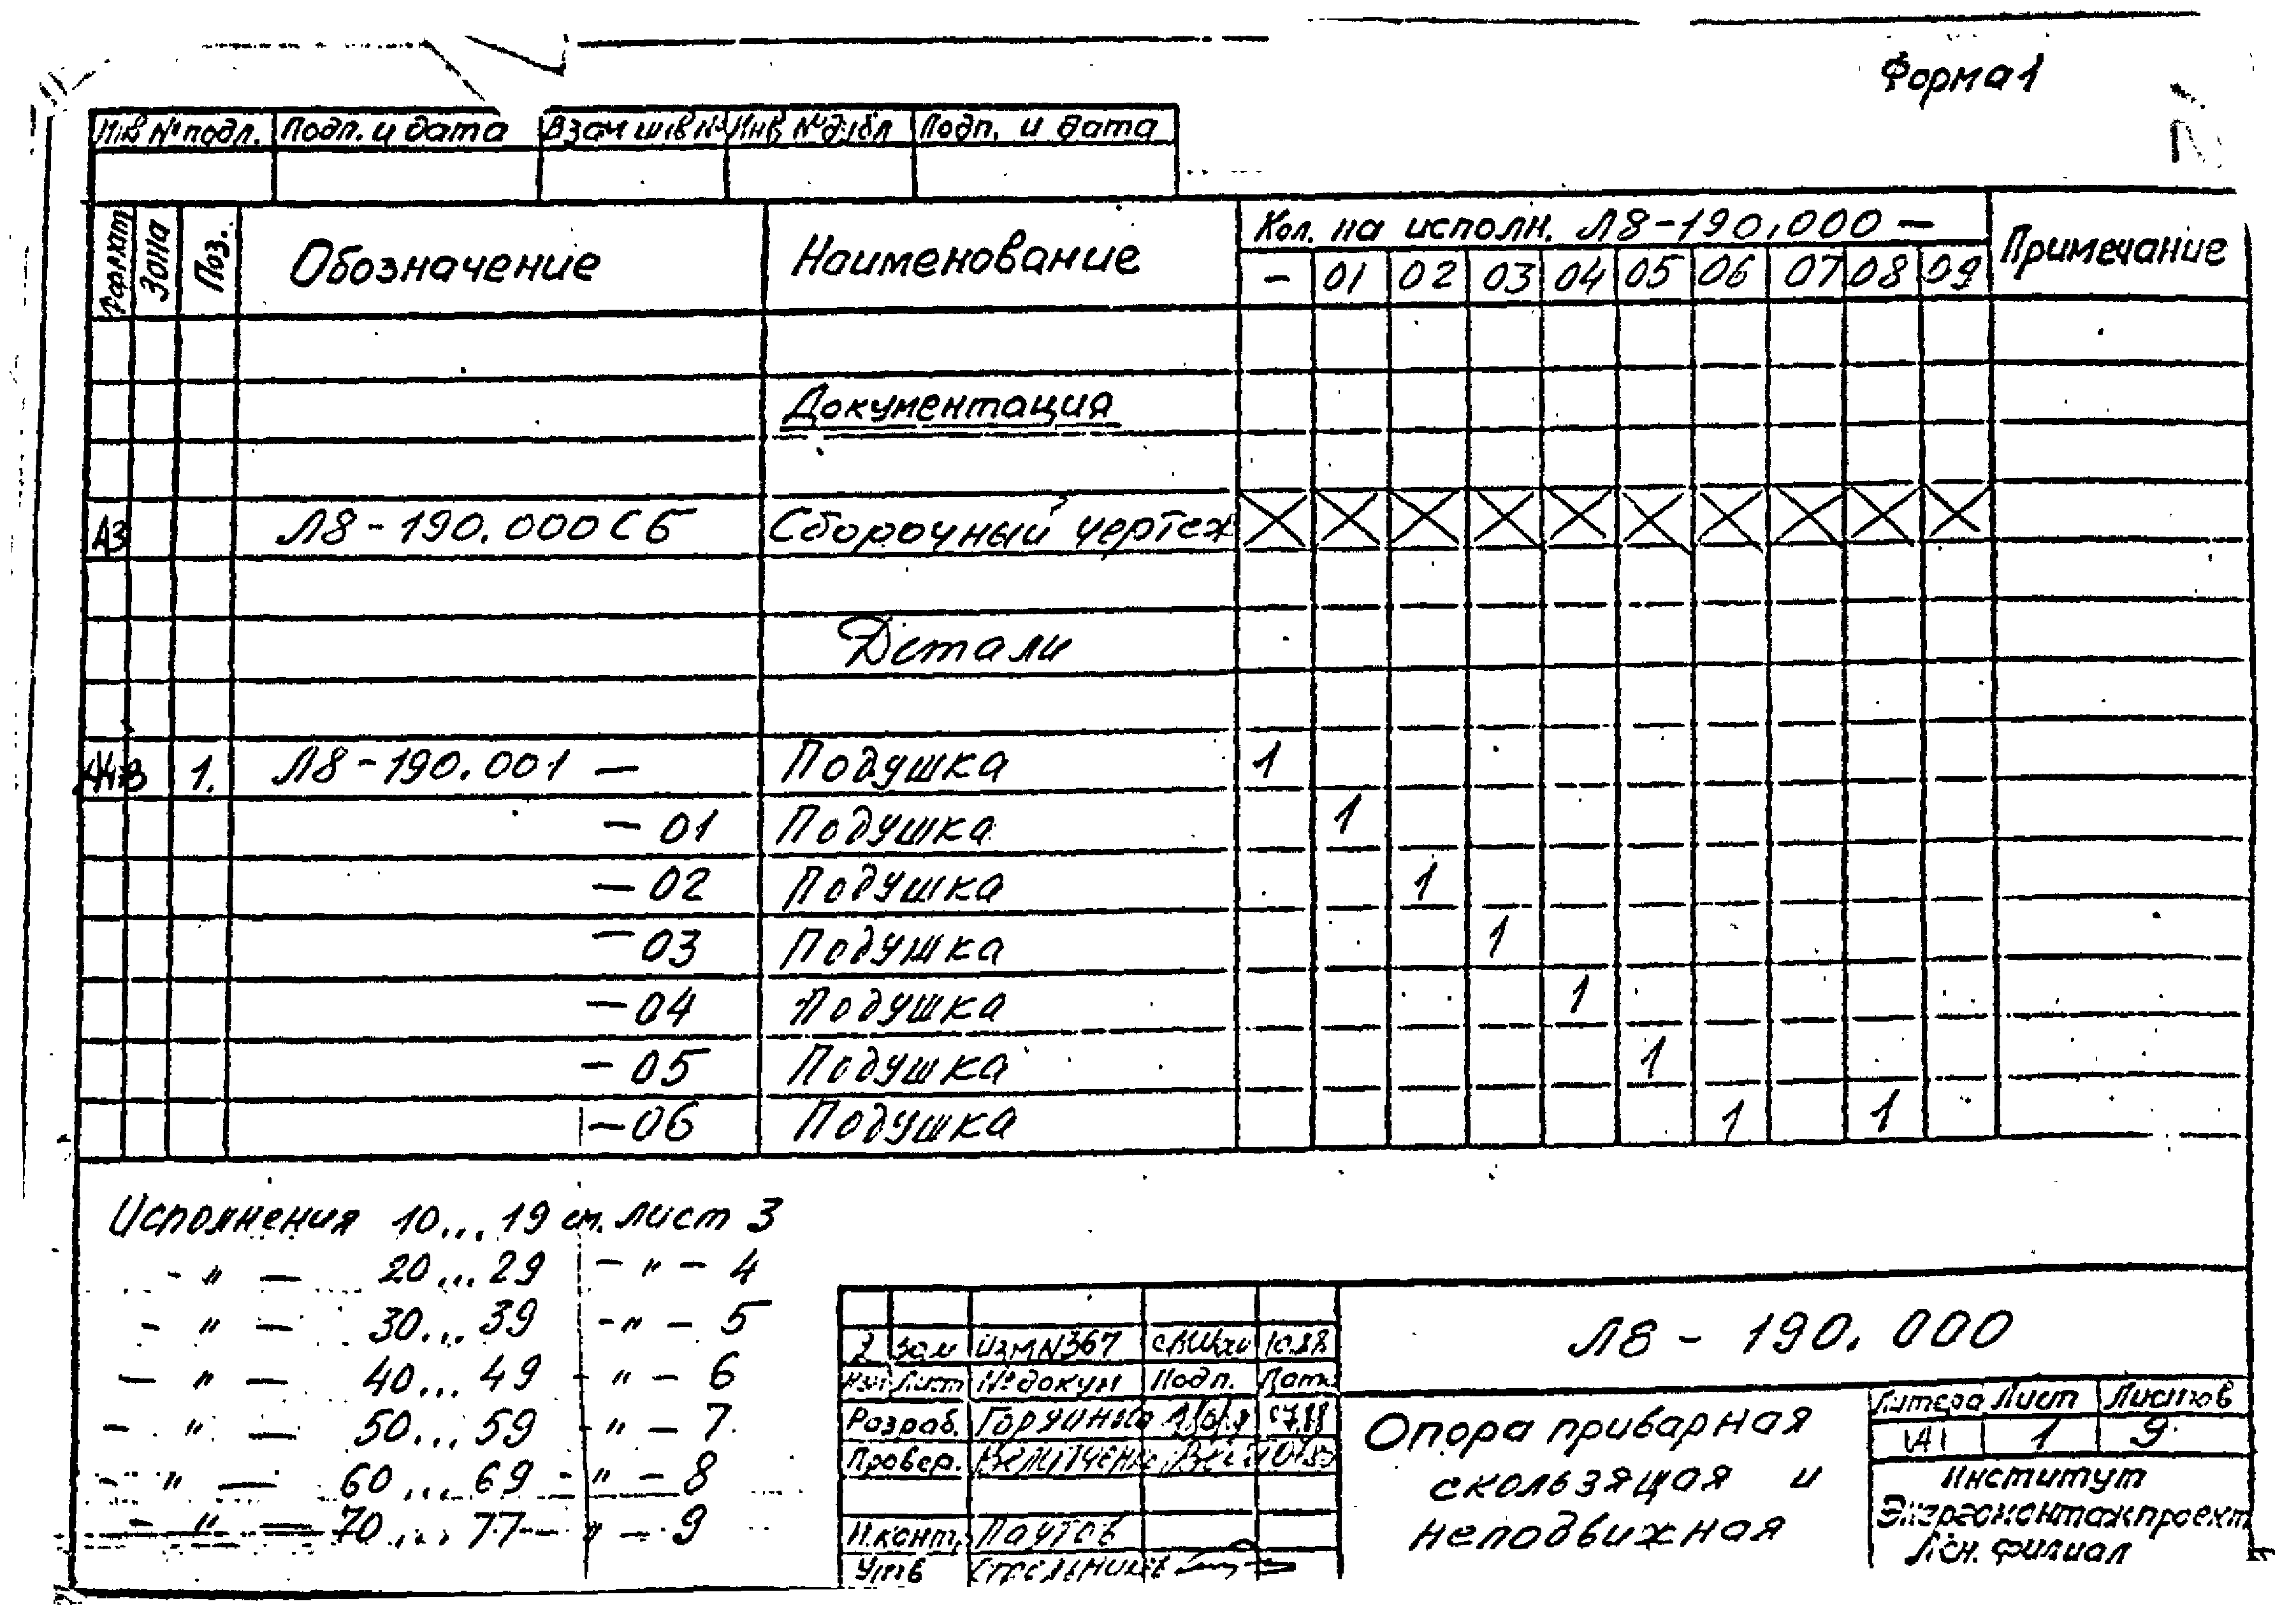 Форма 1
Инв № подл. Подп. и дата Взам инв № Инв № дубл Подп. и дата
Формат Зона Поз. Обозначение Наименование Кол. на исполн. Л8-190.000 — Примечание
— 01 02 03 04 05 06 07 08 09
Документация
А3 Л8-190.000 СБ Сборочный чертеж
Детали
1. Л8-190.001 — Подушка 1
— 01 Подушка 1
— 02 Подушка 1
— 03 Подушка 1
— 04 Подушка 1
— 05 Подушка 1
— 06 Подушка 1 1
Исполнения 10...19 см. лист 3
- " — 20...29 - " - 4
- " — 30...39 - " - 5
- " — 40...49 - " - 6
- " — 50...59 - " - 7
- " — 60...69 - " - 8
- " — 70...77 - " - 9
2 Зам Изм N367 10.88
Изм Лист № докум Подп. Дата
Разраб. 07.88
Провер.
Н.конт. Паутов
Утв
Л8 - 190.000
Опора приварная
скользящая и
неподвижная
Литера Лист Листов
А 1 9
Институт
Энергомонтажпроект
Лен. филиал